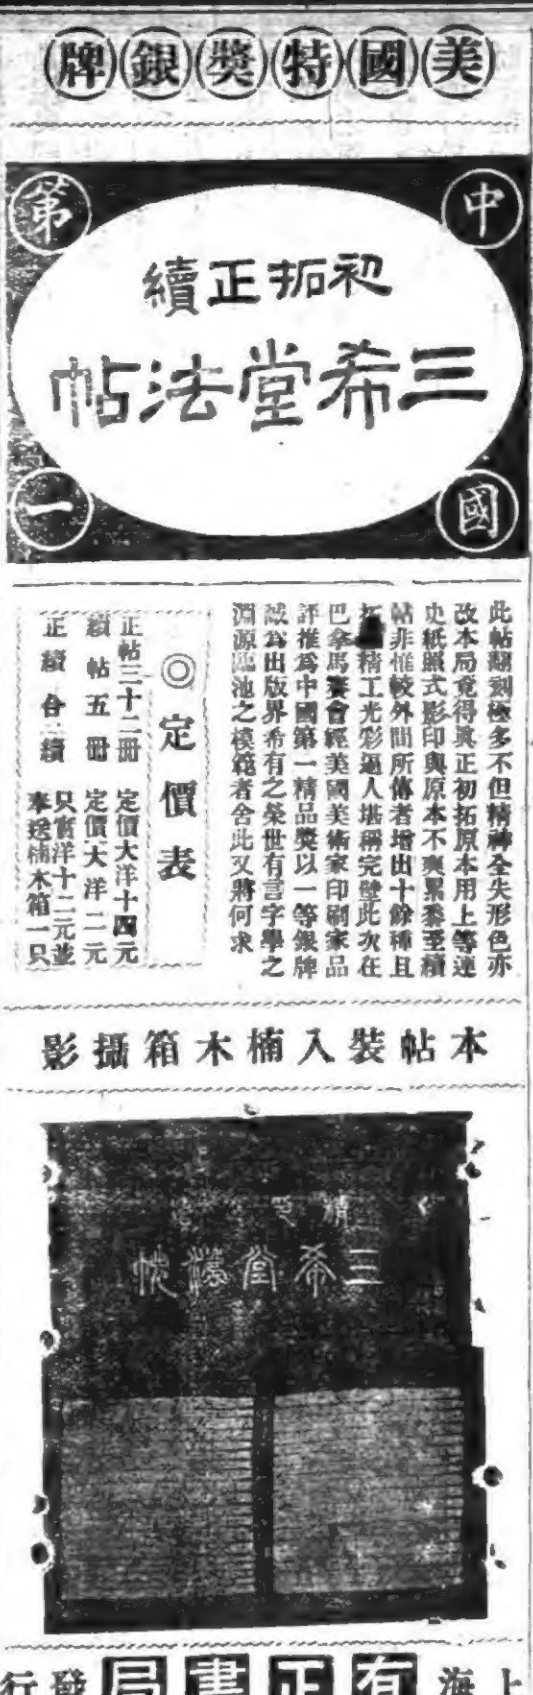 美國特獎銀牌
中國第一
初拓正續
三希堂法帖
此帖翻刻極多不但精神全失形色亦
改本局竟得眞正初拓原本用上等連
史紙照式影印與原本不爽累黍至續
帖非惟較外間所傳者增出十餘種且
拓 精工光彩逼人堪稱完璧此次在
巴拿馬賽會經美國美術家印刷家品
評推爲中國第一精品獎以一等銀牌
誠爲出版界希有之榮世有言字學之
淵源臨池之模範者舍此又將何求
◎定價表
正帖三十二冊 定價大洋十四元
續帖五冊 定價大洋二元
正續合
只實洋十二元並
奉送楠木箱一只
本帖裝入楠木箱攝影
三希堂法帖
上海有正書局發行